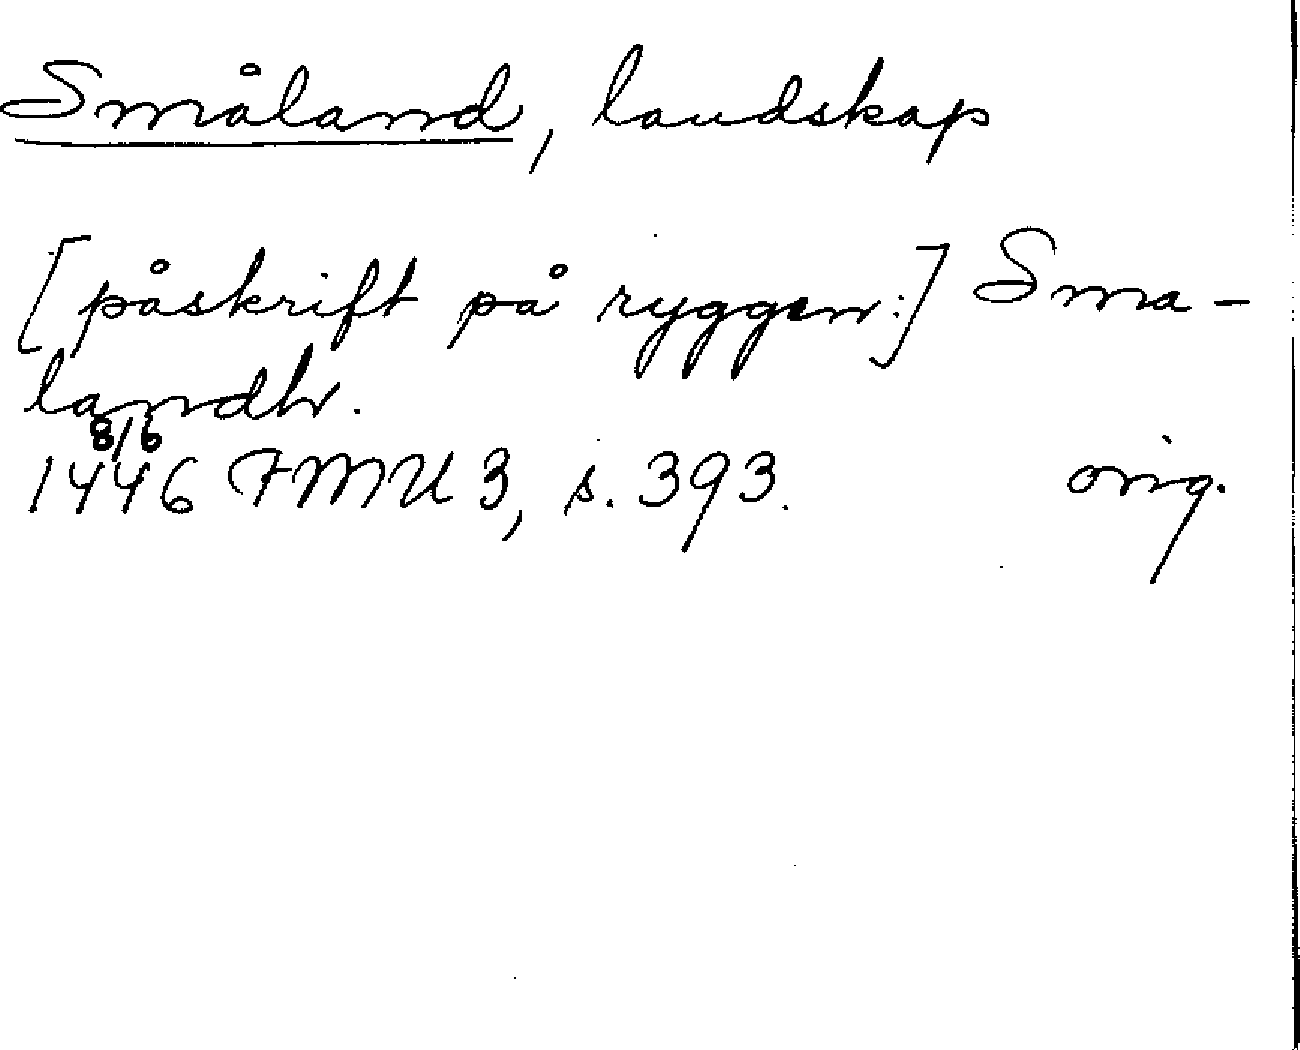 Småland, landskap
[påskrift på ryggen:] Sma-
landh.
8/6
1446 FMU 3, s. 393. orig.